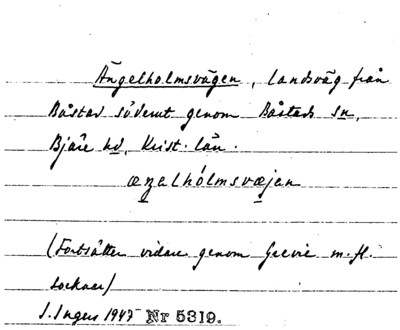 Ängelholmsvägen, landsväg från
Båstad söderut genom Båstads sn,
Bjäre hd, Krist. län.
æŋalhólmsvæjan
(Fortsätter vidare genom Grevie m. fl.
socknar)
J. Inger 1947 Nr 5319.